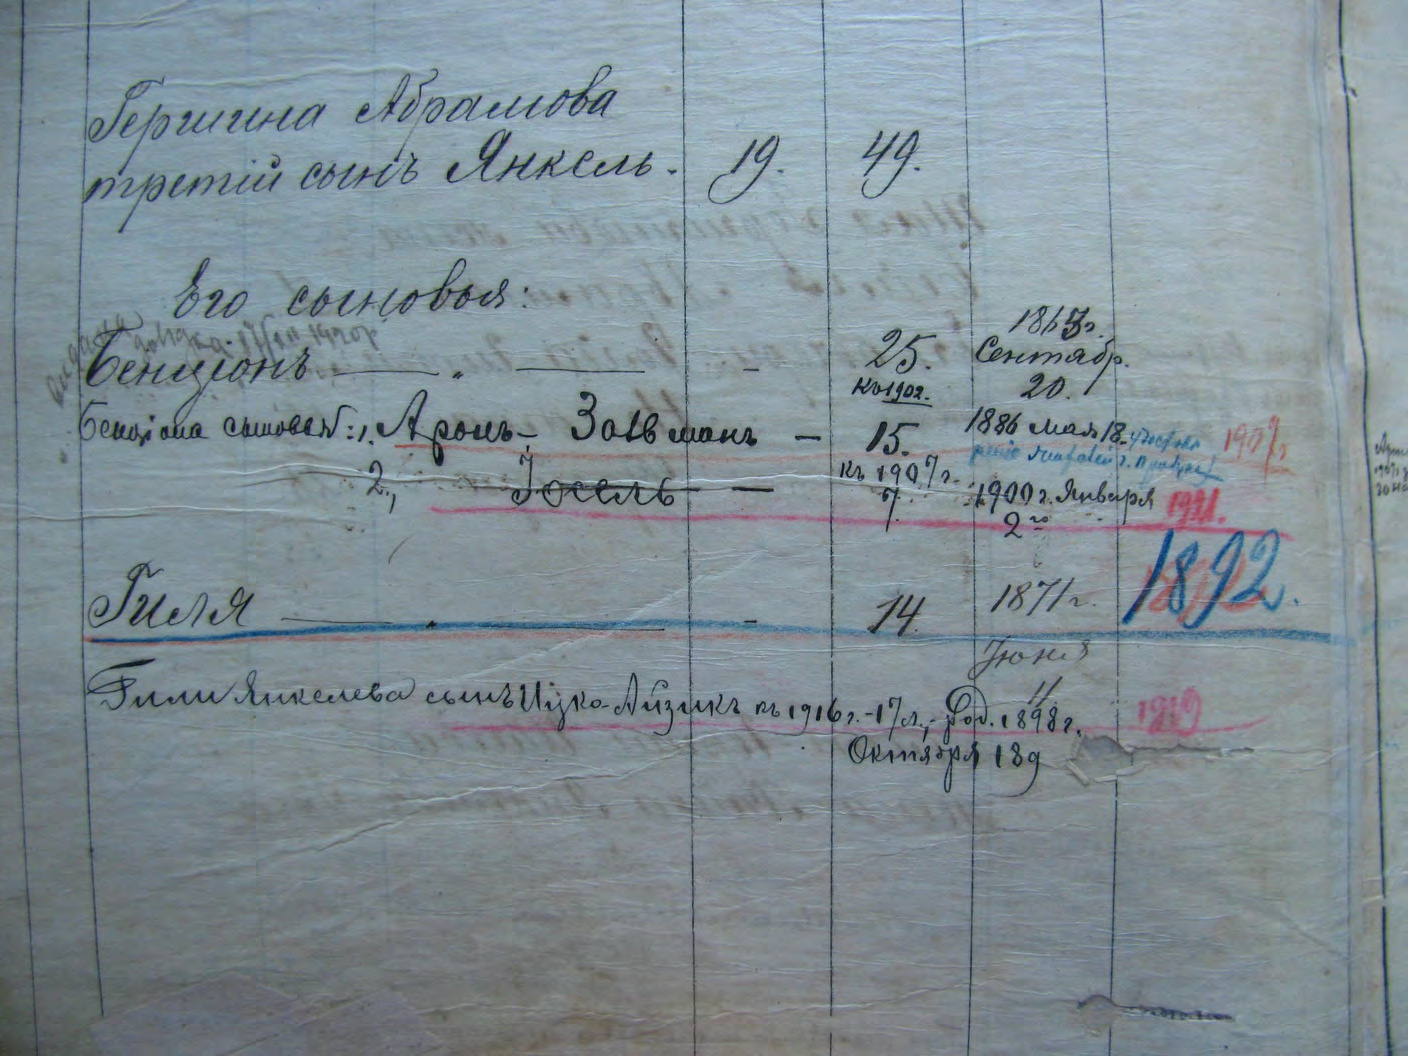 Гершина Абрамова
третій сынъ Янкель. 19. 49.
Его сыновья:
1867 г.
Бенціонъ — „ — - 25. Сентябр.
къ 1902. 20.
Бенціона сыновья: 1. Аронъ-Залманъ — 15. 1886 мая 18. 1907 г.
къ 1907 г.
2., Іосель — 7. 1900 г. Января 1921.
2го
Гиля — „ — - 14. 1871 г. 1892.
Іюня
11
Гили Янкелева сынъ Ицко-Айзикъ къ 1916 г. - 17 л., - Род. 1898 г. 1919
Октября 18 д